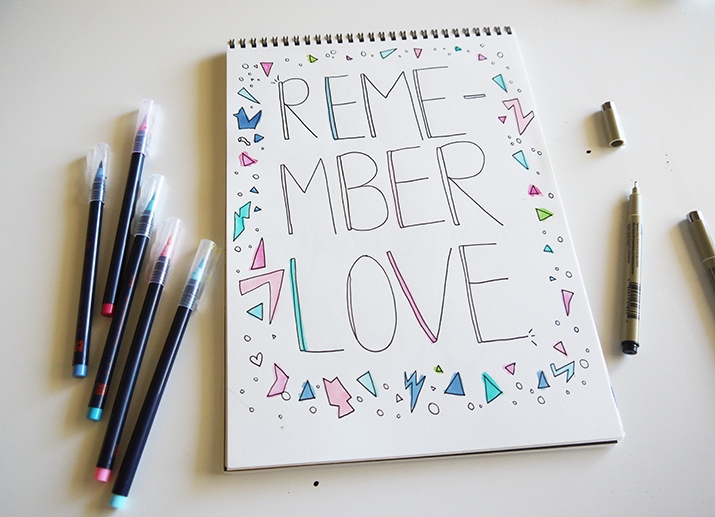 REME-
MBER
LOVE